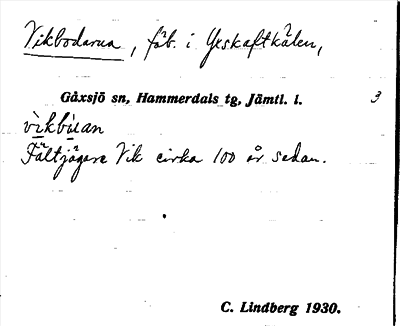 Vikbodarna, fäb. i Yxskaftkälen,
Gåxsjö sn, Hammerdals tg, Jämtl. l. 3
vikbuan
Fältjägare Vik cirka 100 år sedan.
C. Lindberg 1930.